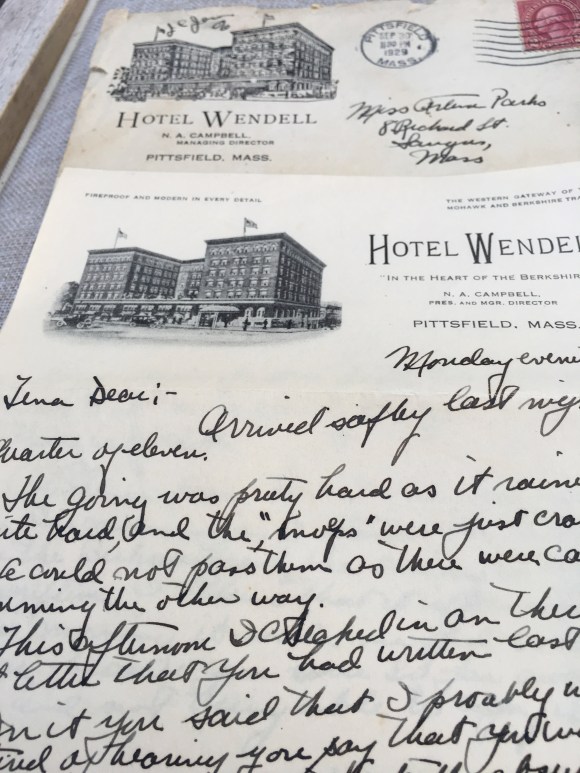 HOTEL WENDELL
N. A. CAMPBELL,
MANAGING DIRECTOR
PITTSFIELD, MASS.
PITTSFIELD
SEP
8 PM
1929
MASS.
Miss Arlene Parks
8 Richard St.
Mass
FIREPROOF AND MODERN IN EVERY DETAIL
THE WESTERN GATEWAY OF
MOHAWK AND BERKSHIRE TRA
HOTEL WENDEL
"IN THE HEART OF THE BERKSHIR
N. A. CAMPBELL,
PRES. AND MGR. DIRECTOR
PITTSFIELD, MASS.
Monday eveni
Dear;-
Arrived safley last nig
quarter of eleven.
The going was prety hard as it raine
ite hard, and the were just cra
e could not pass them as there were ca
mming the other way.
This afternoon I checked in on the
letter that you had written last
In it you said that I proably w
ired of hearing you say that you w